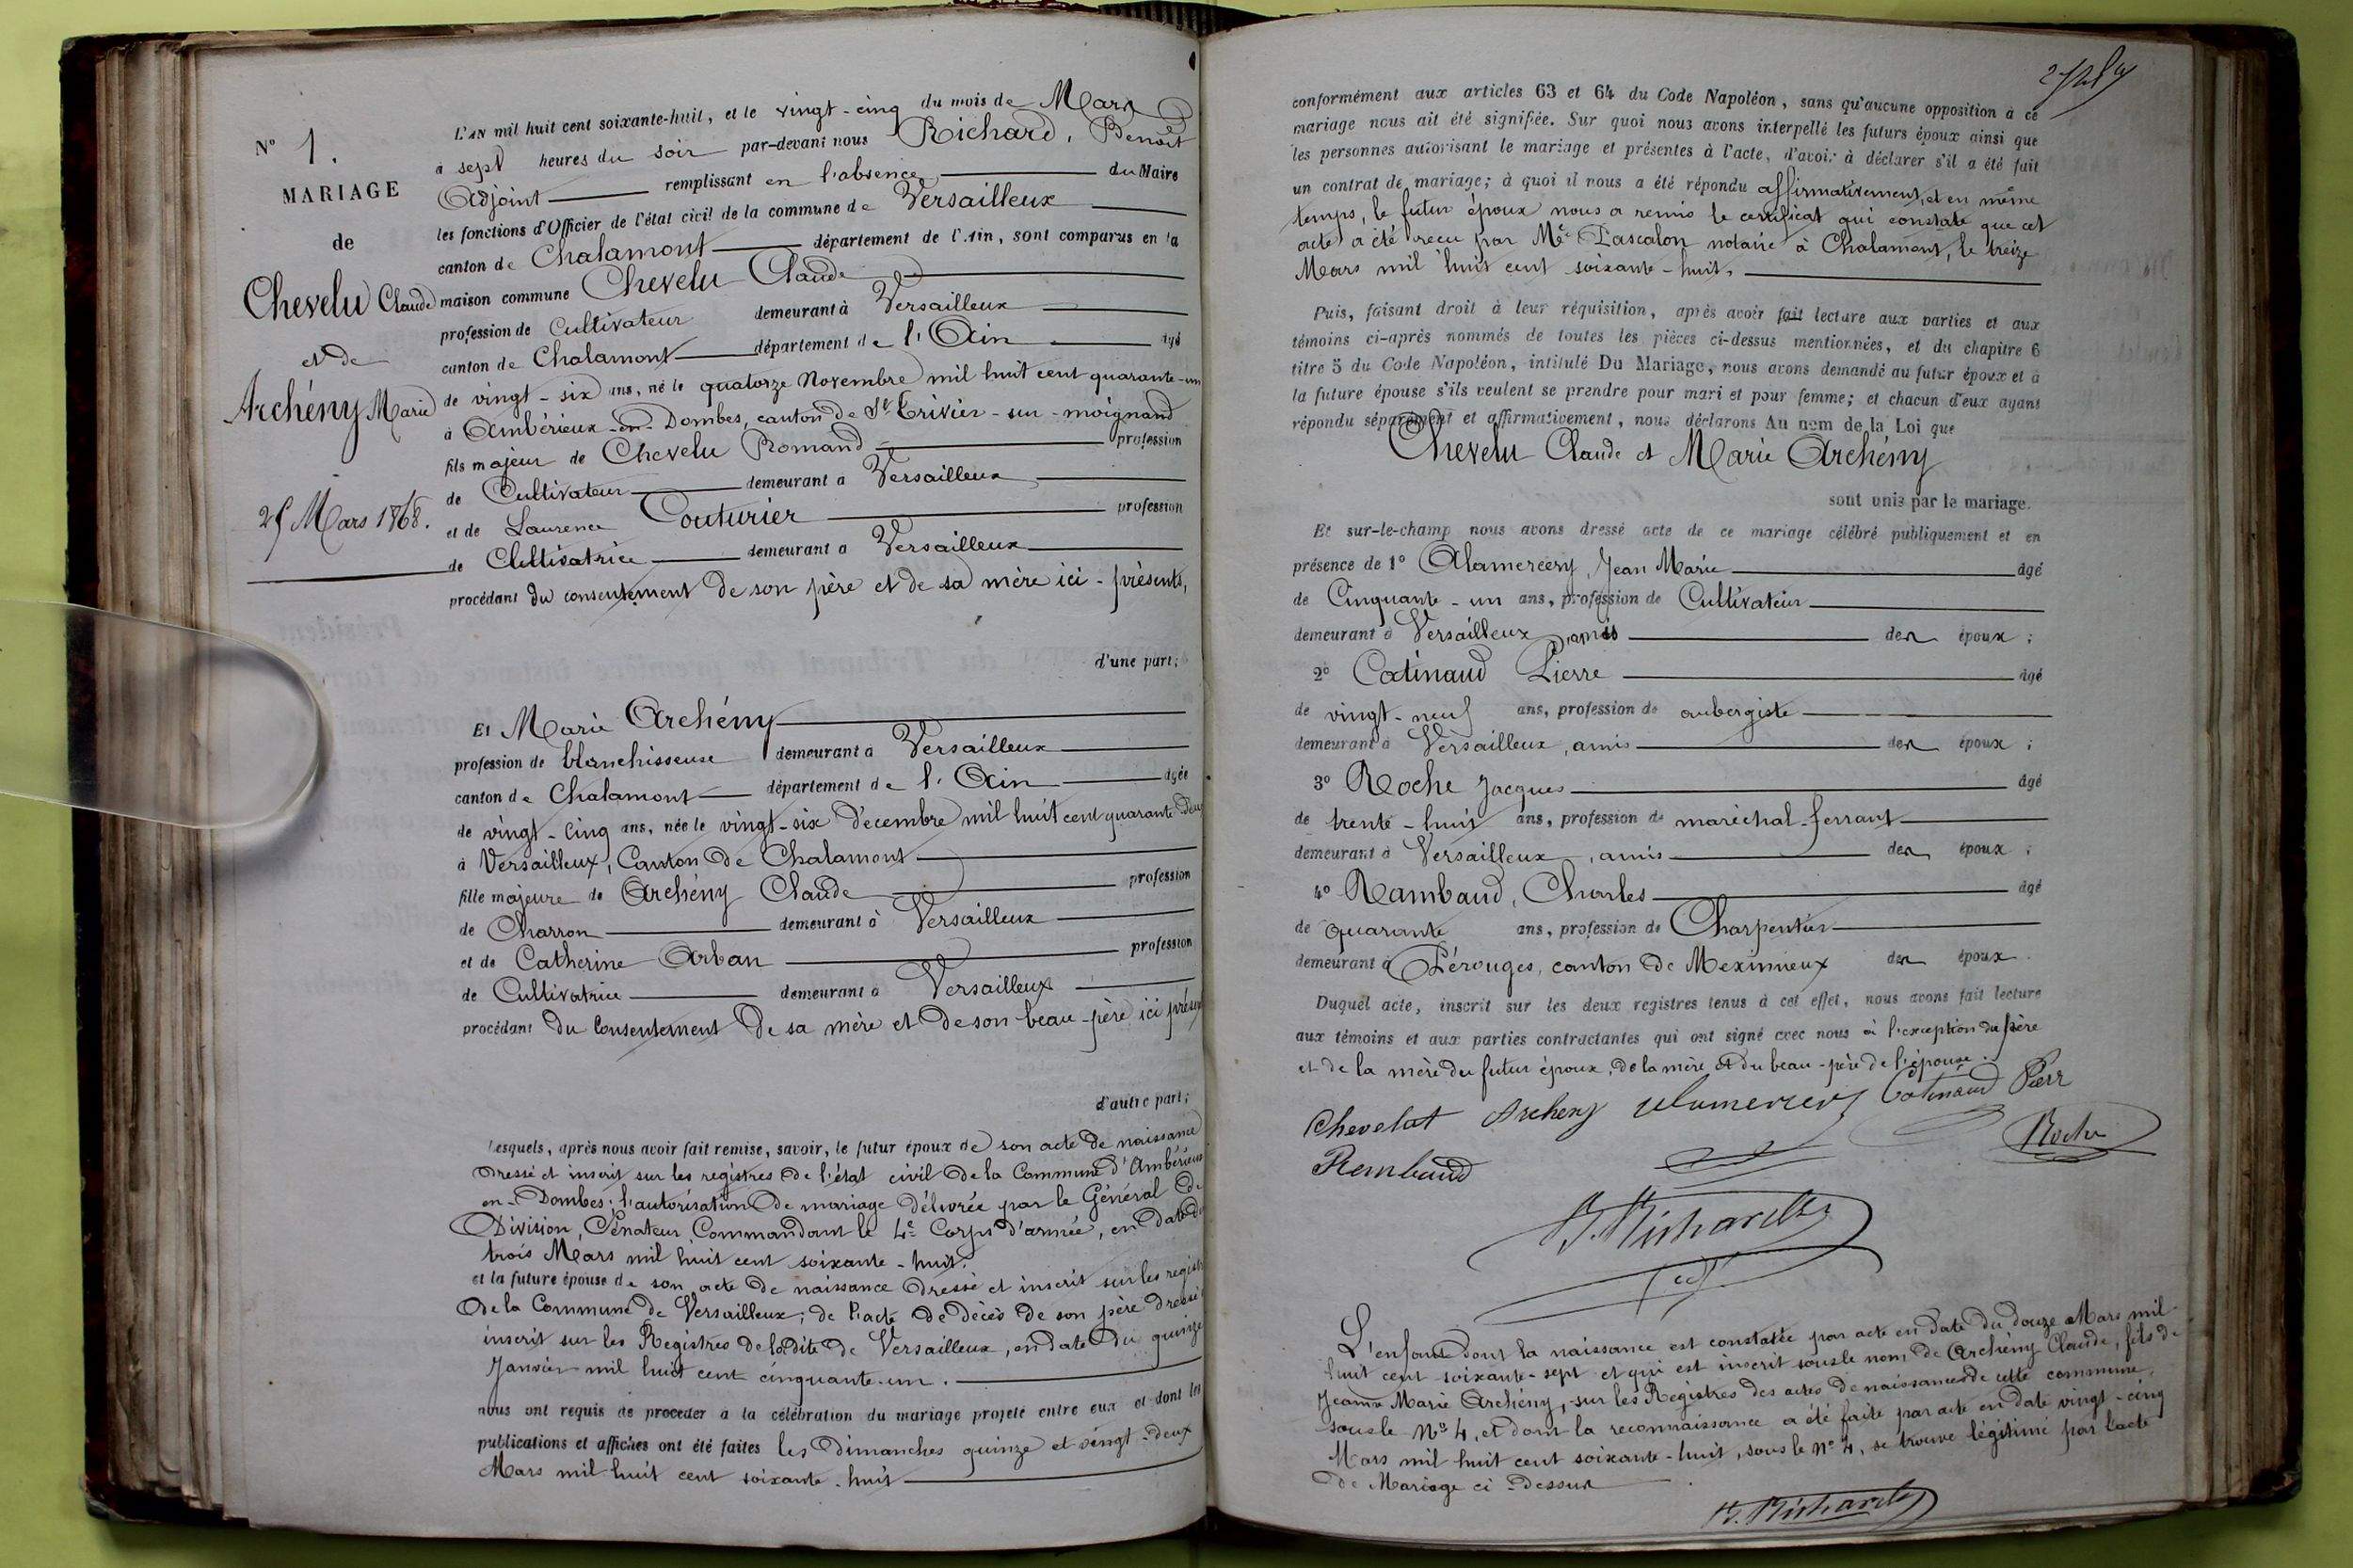 N° 1.
MARIAGE
de
Chevelu Claude
et de
Archény Marie
25 Mars 1868.
L'AN mil huit cent soixante-huit, et le vingt-cinq du mois de Mars
à sept heures du soir par-devant nous Richard, Benoit
Adjoint remplissant en l'absence du Maire
les fonctions d'Officier de l'état civil de la commune de Versailleux
canton de Chalamont département de l'Ain, sont comparus en la
maison commune Chevelu Claude
profession de Cultivateur demeurant à Versailleux
canton de Chalamont département de l'Ain âgé
de vingt-six ans, né le quatorze Novembre mil huit cent quarante-un
à Ambérieux-en-Dombes, canton de St Trivier-sur-moignand
fils majeur de Chevelu Romand profession
de Cultivateur demeurant à Versailleux
et de Laurence Couturier profession
de Cultivatrice demeurant à Versailleux
procédant du consentement de son père et de sa mère ici-présents,
d'une part;
Et Marie Archény
profession de blanchisseuse demeurant à Versailleux
canton de Chalamont département de l'Ain âgée
de vingt-cinq ans, née le vingt-six Décembre mil huit cent quarante-deux
à Versailleux, Canton de Chalamont
fille majeure de Archény Claude profession
de Charron demeurant à Versailleux
et de Catherine Arban profession
de Cultivatrice demeurant à Versailleux
procédant du Consentement de sa mère et de son beau-père ici présen
d'autre part;
Lesquels, après nous avoir fait remise, savoir, le futur époux de son acte de naissance
dressé et inscrit sur les registres de l'état civil de la Commune d'Ambérieux
en-Dombes; l'autorisation de mariage délivrée par le Général de
Division, Sénateur Commandant le 4e Corps d'armée, en date du
trois Mars mil huit cent soixante-huit.
et la future épouse de son acte de naissance dressé et inscrit sur les regist
de la Commune de Versailleux; de l'acte de décès de son père dressé
inscrit sur les Registres de ladite de Versailleux, en date du quinze
Janvier mil huit cent cinquante-un.
nous ont requis de procéder à la célébration du mariage projeté entre eux et dont les
publications et affiches ont été faites les Dimanches quinze et vingt-deux
Mars mil huit cent soixante-huit
conformément aux articles 63 et 64 du Code Napoléon, sans qu'aucune opposition à ce
mariage nous ait été signifiée. Sur quoi nous avons interpellé les futurs époux ainsi que
les personnes autorisant le mariage et présentes à l'acte, d'avoir à déclarer s'il a été fait
un contrat de mariage; à quoi il nous a été répondu affirmativement, et en même
temps, le futur époux nous a remis le certificat qui constate que cet
acte a été reçu par Me Pascalon notaire à Chalamont, le treize
Mars mil huit cent soixante-huit.
Puis, faisant droit à leur réquisition, après avoir fait lecture aux parties et aux
témoins ci-après nommés de toutes les pièces ci-dessus mentionnées, et du chapitre 6
titre 5 du Code Napoléon, intitulé Du Mariage, nous avons demandé au futur époux et à
la future épouse s'ils veulent se prendre pour mari et pour femme; et chacun d'eux ayant
répondu séparément et affirmativement, nous déclarons Au nom de la Loi que
Chevelu Claude et Marie Archény
sont unis par le mariage.
Et sur-le-champ nous avons dressé acte de ce mariage célébré publiquement et en
présence de 1° Alamercery, Jean Marie âgé
de Cinquante-un ans, profession de Cultivateur
demeurant à Versailleux, amis des époux;
2° Catinaud Pierre âgé
de vingt-neuf ans, profession de aubergiste
demeurant à Versailleux, amis des époux;
3° Roche Jacques âgé
de trente-huit ans, profession de maréchal-ferrant
demeurant à Versailleux, amis des époux;
4° Rambaud, Charles âgé
de quarante ans, profession de Charpentier
demeurant à Pérouges, canton de Meximieux des époux.
Duquel acte, inscrit sur les deux registres tenus à cet effet, nous avons fait lecture
aux témoins et aux parties contractantes qui ont signé avec nous à l'exception du père
et de la mère du futur époux, de la mère et du beau-père de l'épouse.
Chevelat Archeny Alamercery Catinaud Pierr
Roche
Rembaud
B. Richard
L'enfant dont la naissance est constatée par acte en date du douze Mars mil
huit cent soixante-sept et qui est inscrit sous le nom de Archény Claude, fils de
Jeanne Marie Archény, sur les Registres des actes de naissances de cette commune,
sous le N° 4, et dont la reconnaissance a été faite par acte en date vingt-cinq
Mars mil huit cent soixante-huit, sous le N° 4, se trouve légitimé par l'acte
de Mariage ci-dessus
B. Richard